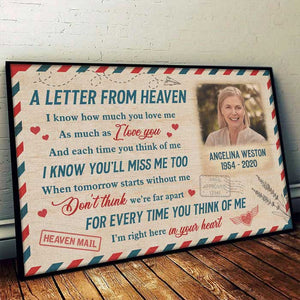 A LETTER FROM HEAVEN
I know how much you love me
As much as I love you
And each time you think of me
I KNOW YOU'LL MISS ME TOO
When tomorrow starts without me
Don't think we're far apart
FOR EVERY TIME YOU THINK OF ME
I'm right here in your heart
ANGELINA WESTON
1954 - 2020
HEAVEN MAIL